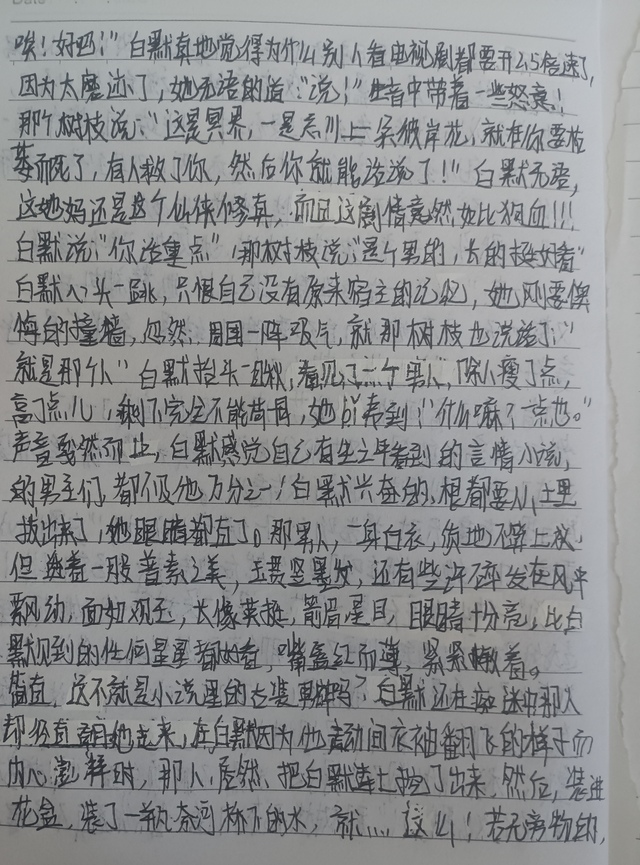 唉！好吧！”白默真地觉得为什么别人看电视剧都要开2.5倍速了，
因为太磨迹了，她无语的道：“说！”生音中带着一些怒意！
那个树枝说：“这是冥界，一是忘川上一朵彼岸花，就在你要枯
萎而死了，有人救了你，然后你就能活说了！”白默无语，
这她妈还是个仙侠修真，而且这剧情竟然如比狗血!!!
白默说“你话重点”，那树枝说：“是个男的，长的挺好看”
白默心头一跳，只恨自己没有原来宿主的记忆，她刚要懊
悔的撞墙，忽然，周围一阵吸气，就那树枝也说话了：“
就是那个人”白默抬头一瞅，看见了一个男人，除了瘦了点，
高了点儿，剩下完全不能苘同，她
声音戛然而止，白默感觉自己有生之年看到的言情小说，
的男主们，都不及他万分之一！白默兴奋的，根都要从土里
拔出来了，她眼睛都直了。那男人，一身白衣，质地不算上成
但 着一股普素之美，玉贯竖墨发，还有些许碎发在风中
飘动，面如观玉，大像英挺，箭眉星目，眼睛十分亮，比白
默见到的任何星星都好看，嘴唇红而薄，紧紧 着。
简直，这不就是小说里的古装男神吗？白默还在 迷中那人
却径直朝她走来，在白默因为他走动间衣袖翻飞的样子而
内心澎拜时，那人居然、把白默连土挖了出来，然后，装进
花盆，装了一瓶奈河 下的水，就....这么！若无旁物的，